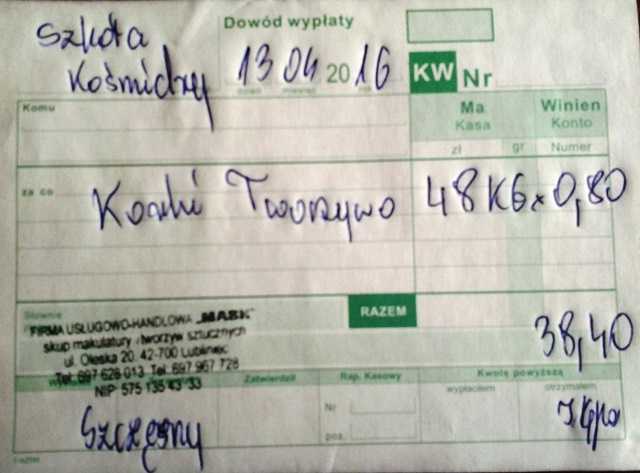 Szkoła
Kośmidry
Dowód wypłaty
13 04 2016
KW Nr
Komu
Ma
Kasa
Winien
Konto
zł gr Numer
za co
Korki Tworzywo 48 KG x 0,80
Słownie
RAZEM
38,40
FIRMA USŁUGOWO-HANDLOWA „MASK"
skup makulatury i tworzyw sztucznych
ul. Oleska 20, 42-700 Lubliniec
Tel. 697 628 013 Tel. 697 967 728
NIP: 575 135 43 33
Zatwierdził
Rap. Kasowy
Kwotę powyższą
wypłaciłem
otrzymałem
Nr
poz.
Szczęsny